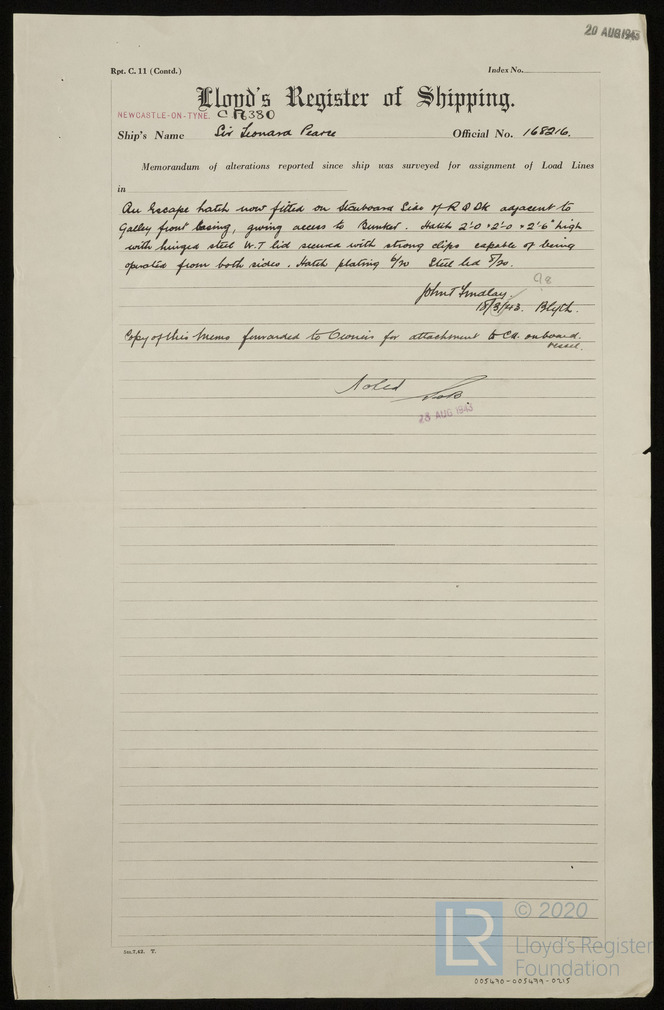 20 AUG 1943
Rpt. C. 11 (Contd.)
Index No.
Lloyd's Register of Shipping.
NEWCASTLE-ON-TYNE. C 16380
Ship's Name Sir Leonard Pearce Official No. 168216.
Memorandum of alterations reported since ship was surveyed for assignment of Load Lines
in
An Escape hatch now fitted on Starboard Side of R Q Dk adjacent to
Galley front Casing, giving access to Bunker. Hatch 2'-0 × 2'-0 × 2'-6" high
with hinged steel W.T lid secured with strong clips capable of being
operated from both sides. Hatch plating 6/20 Steel lid 8/20.
98
John T Findlay
18/8/43. Blyth.
Copy of this memo forwarded to Owners for attachment to Ctl. onboard
vessel.
Noted
23 AUG 1943
Stn. 7,42. T.
LR
© 2020
Lloyd's Register
Foundation
005490-005499-0215